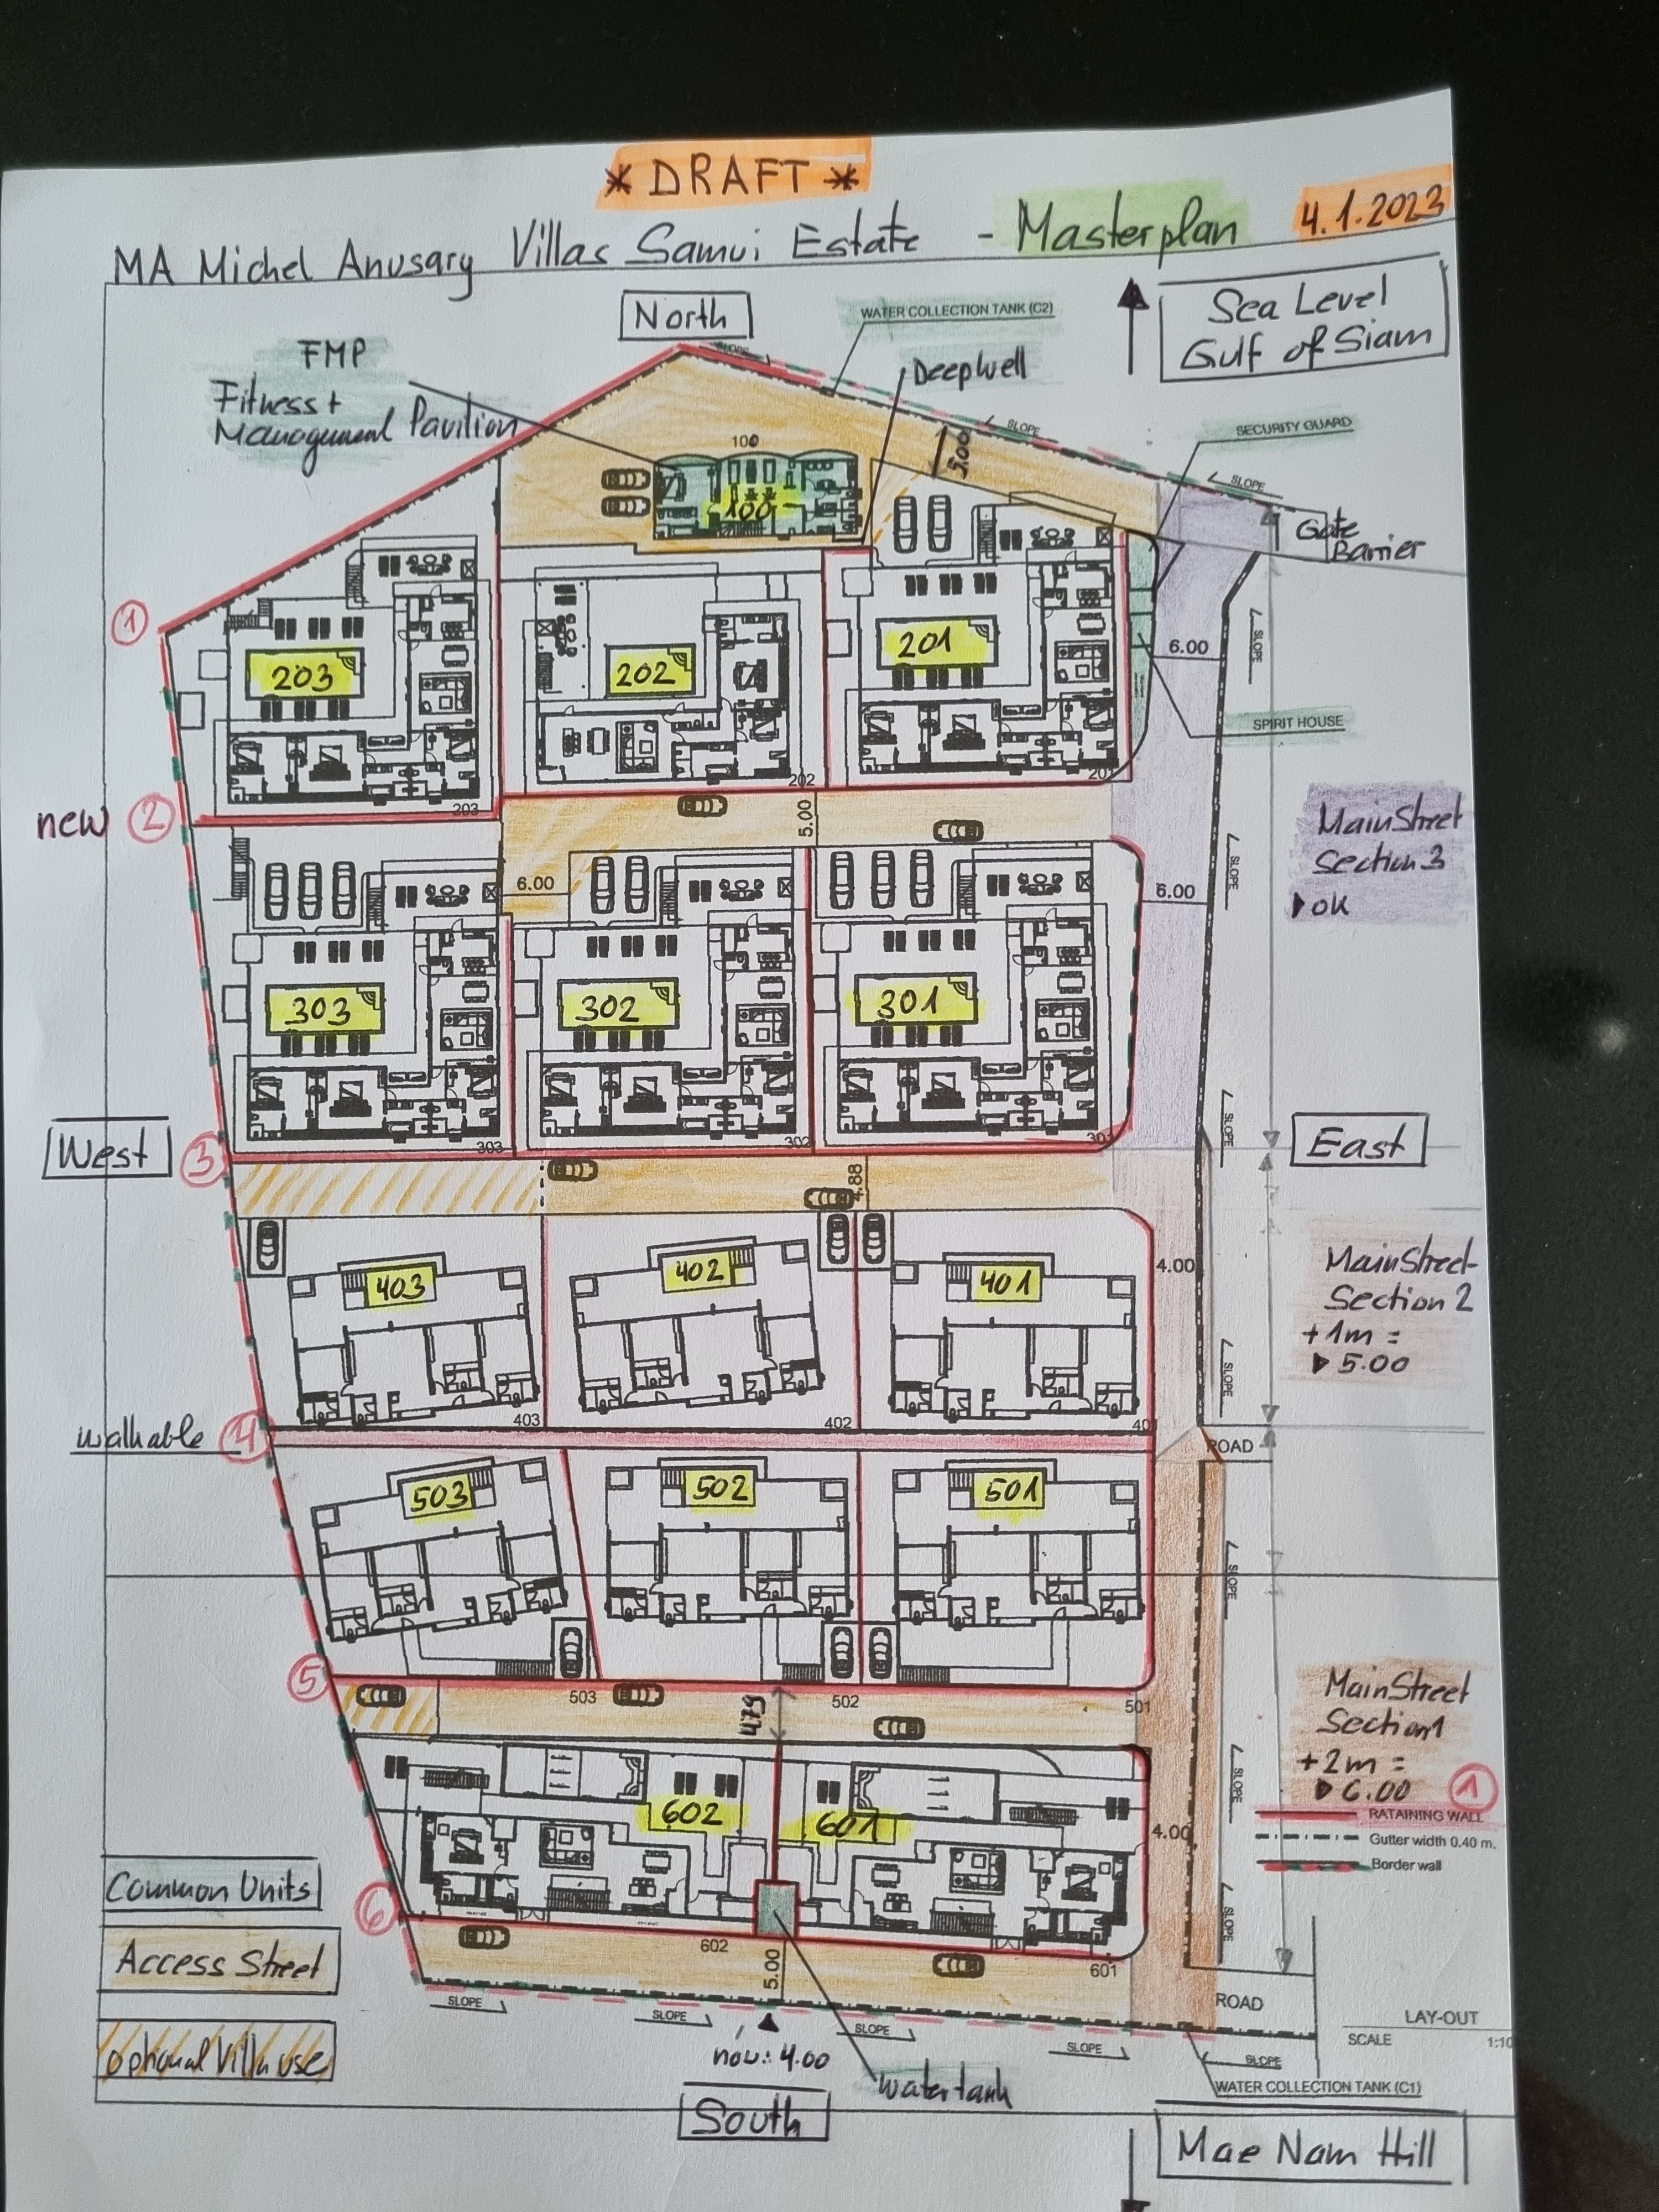 * DRAFT *
MA Michel Anusary Villas Samui Estate - Masterplan
4.1.2023
North
WATER COLLECTION TANK (C2)
Sea Level
Gulf of Siam
FMP
Fitness +
Management Pavilion
SLOPE
Deepwell
SLOPE
SECURITY GUARD
100
5.00
SLOPE
100
Gate
Barrier
1
SLOPE
203
202
201
6.00
SPIRIT HOUSE
203
202
201
new 2
5.00
MainStreet
Section 3
OK
SLOPE
6.00
6.00
303
302
301
SLOPE
303
302
301
West
3
East
4.88
403
402
401
4.00
MainStreet-
Section 2
+1m =
5.00
SLOPE
403
402
401
walkable 4
ROAD
503
502
501
SLOPE
5
503
502
501
4.79
MainStreet
Section 1
+2m =
6.00
1
SLOPE
602
601
4.00
RATAINING WALL
Gutter width 0.40 m.
Border wall
Common Units
6
SLOPE
602
601
Access Street
5.00
SLOPE
SLOPE
SLOPE
SLOPE
ROAD
LAY-OUT
SCALE
optional Villa use
now: 4.00
SLOPE
watertank
WATER COLLECTION TANK (C1)
South
Mae Nam Hill